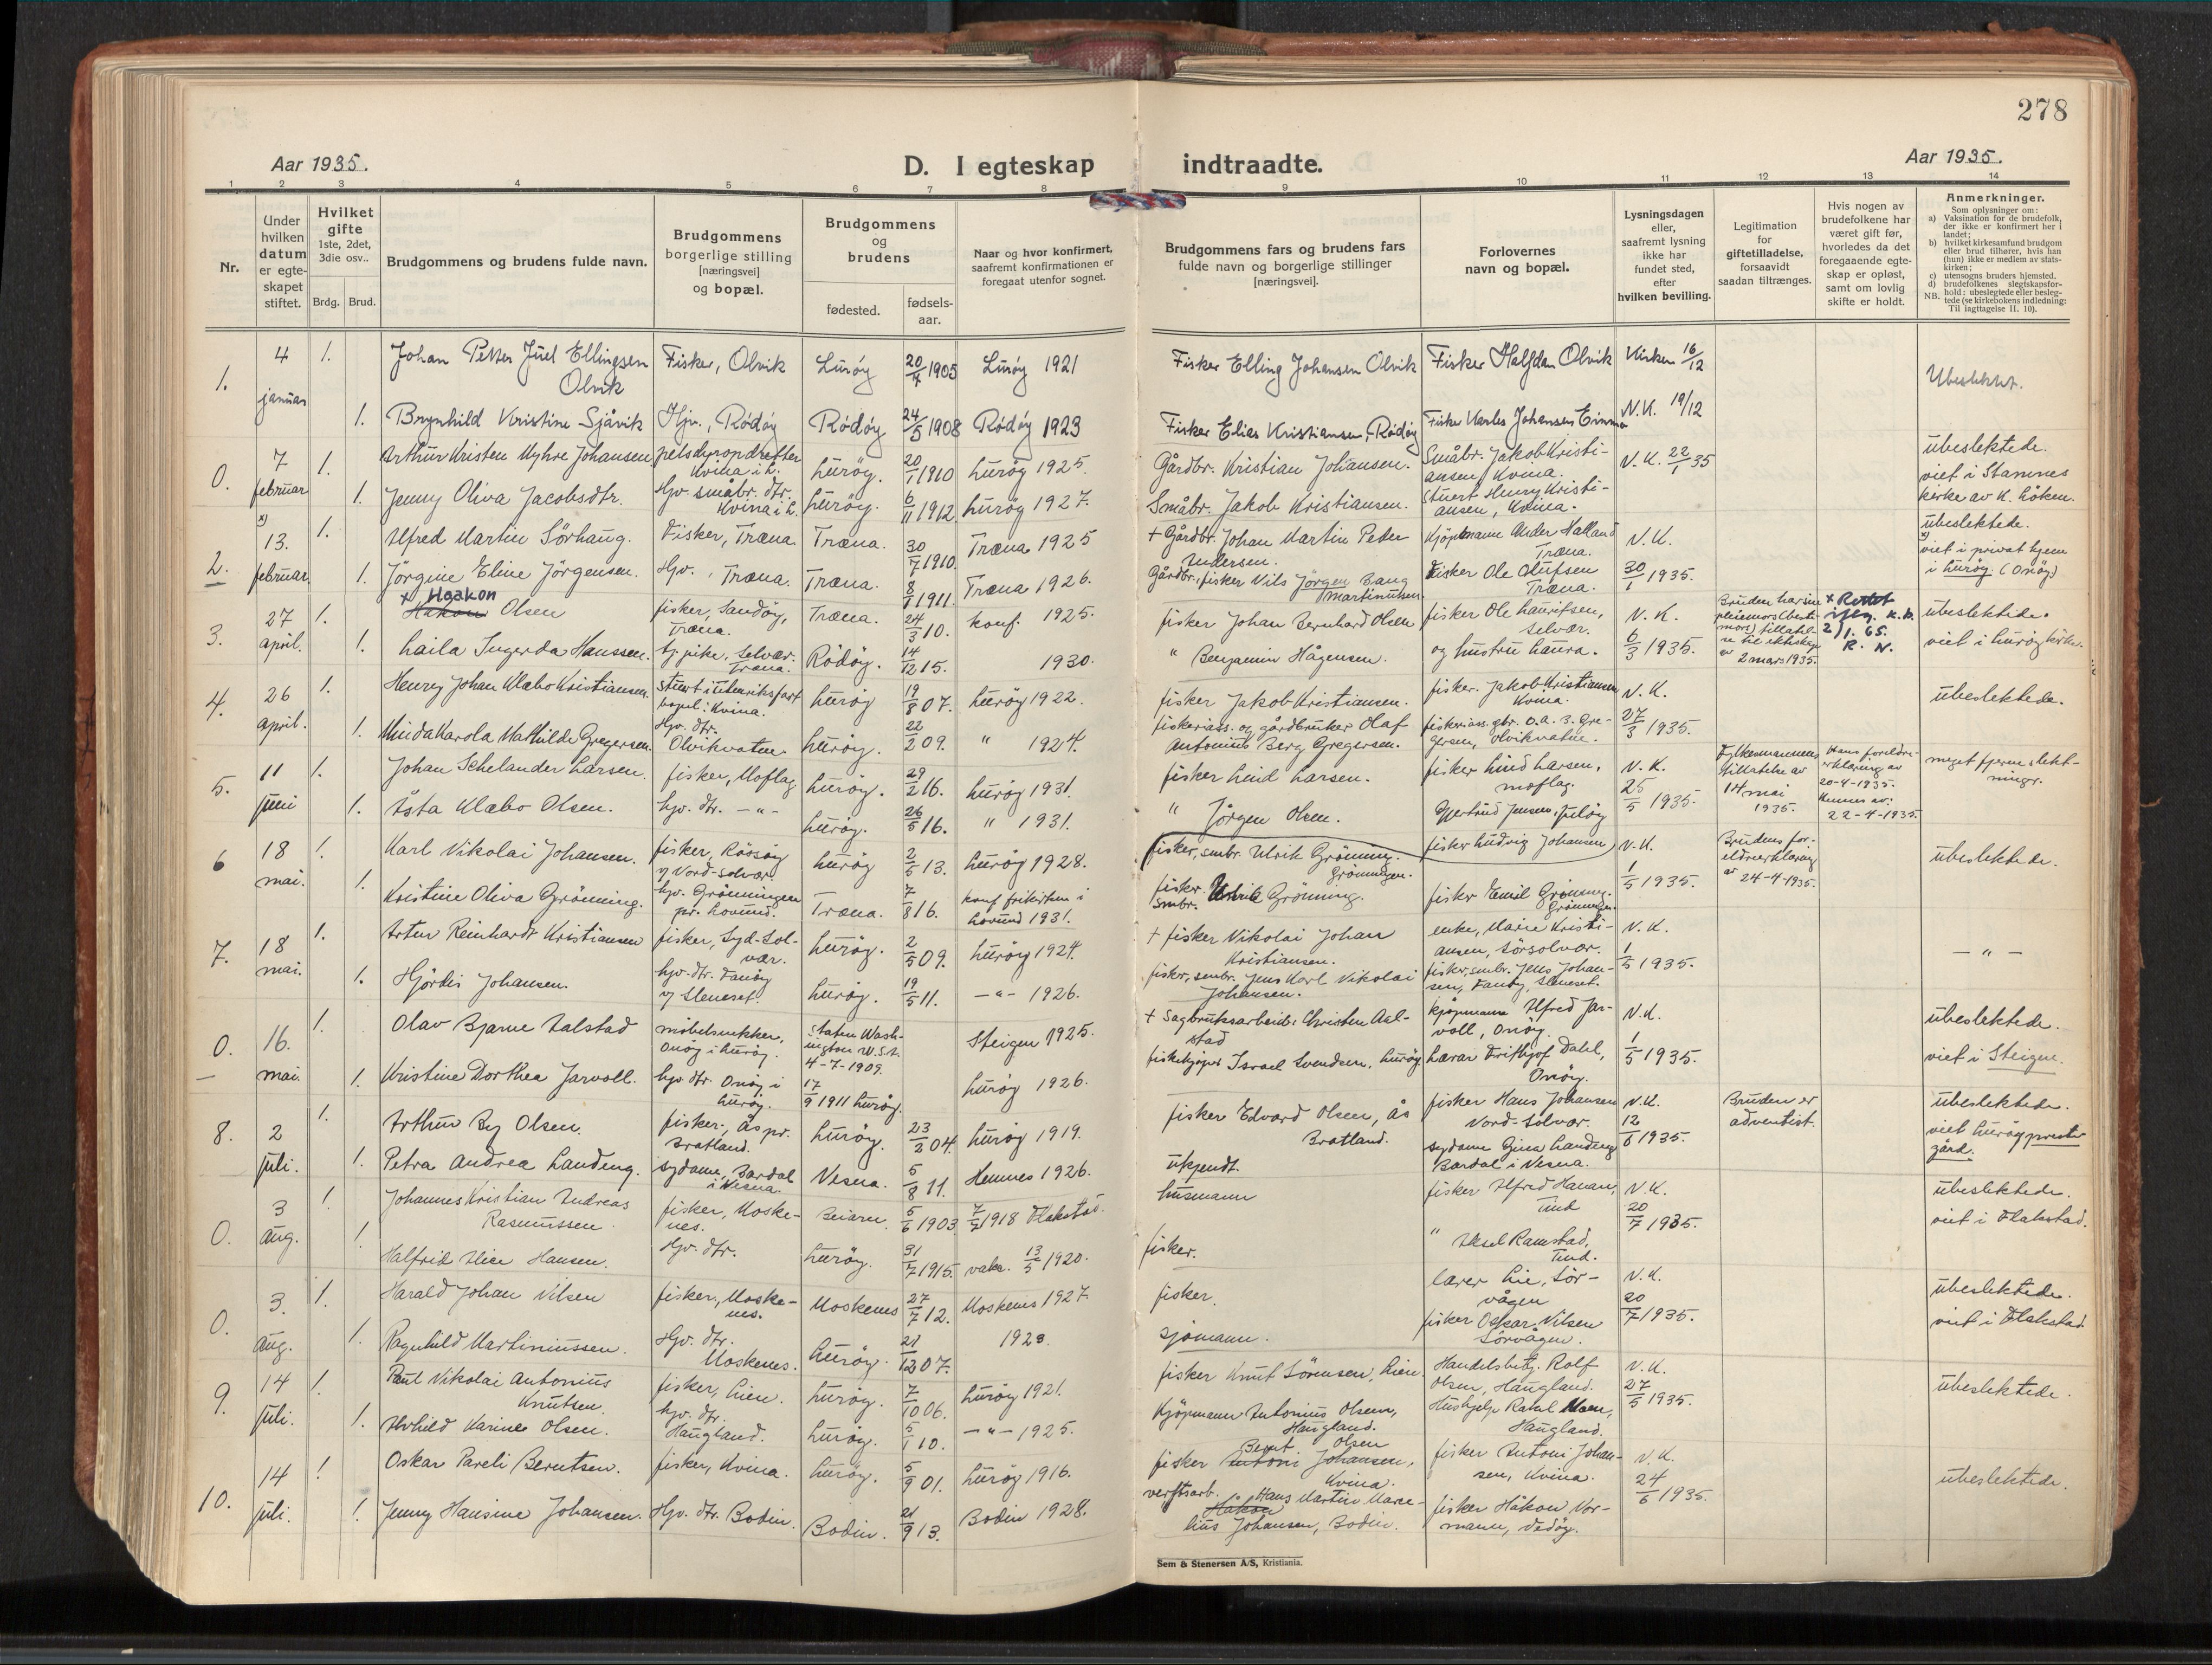 278
Aar 1935.
D. I egteskap indtraadte.
Aar 1935.
1 2 3 4 5 6 7 8 9 10 11 12 13 14
Nr.
Under hvilken datum er egte-skapet stiftet.
Hvilket gifte 1ste, 2det, 3die osv..
Brdg. Brud.
Brudgommens og brudens fulde navn.
Brudgommens borgerlige stilling [næringsvei] og bopæl.
Brudgommens og brudens
fødested.
fødsels-aar.
Naar og hvor konfirmert, saafremt konfirmationen er foregaat utenfor sognet.
Brudgommens fars og brudens fars fulde navn og borgerlige stillinger [næringsvei].
Forlovernes navn og bopæl.
Lysningsdagen eller, saafremt lysning ikke har fundet sted, efter hvilken bevilling.
Legitimation for giftetilladelse, forsaavidt saadan tiltrænges.
Hvis nogen av brudefolkene har været gift før, hvorledes da det foregaaende egte-skap er opløst, samt om lovlig skifte er holdt.
Anmerkninger.
Som oplysninger om:
a) Vaksination for de brudefolk, der ikke er konfirmert her i landet;
b) hvilket kirkesamfund brudgom eller brud tilhører, hvis han (hun) ikke er medlem av stats-kirken;
c) utensogns bruders hjemsted.
d) brudefolkenes slegtskapsfor-hold: ubeslegtede eller besleg-tede (se kirkebokens indledning:
NB. Til iagttagelse II. 10).
1. 4 januar 1. Johan Petter Juel Ellingsen Olvik Fisker, Olvik Lurøy 20/4 1905 Lurøy 1921 Fisker Elling Johansen Olvik Fisker Halfdan Olvik Kirken 16/12 Ubeslektet.
1. Brynhild Kristine Sjåvik Hjv., Rödöy Rödöy 24/5 1908 Rödöy 1923 Fisker Elias Kristiansen, Rödöy Fisker Karles Johansen N.K. 19/12
0. 7 februar 1. Arthur Kristen Myhre Johansen pelsdyropdretter Kvina i L. Luröy. 20/1 1910 Luröy 1925. Gårdbr. Kristian Johansen. Småbr. Jakob Kristiansen, Kvina. N.K. 22/1 35 ubeslektede. viet i Stamnes kirke av K. Löken.
1. Jenny Oliva Jacobsdtr. Hjv. småbr. dtr. Kvina i L. Luröy. 6/11 1912. Luröy 1927. Småbr. Jakob Kristiansen. Stuert Henry Kristiansen, Kvina.
2. x) 13. februar. 1. Alfred Martin Sörhaug. Fisker, Træna. Træna. 30/7 1910. Træna 1925 + Gårdbr. Johan Martin Peder Andersen. Kjöpmann Ander Halland Træna. N.K. 30/1 1935. ubeslektede. x) viet i privat hjem i Luröy. (Onöy)
1. Jörgine Eline Jörgensen. Hjv., Træna. Træna. 8/1 1911. Træna 1926. Gårdbr., fisker Nils Jörgen Bang Martinussen Fisker Ole Olufsen Træna.
3. 27 april. 1. x Haakon Håkon Olsen fisker, Sandöy, Træna. Træna. 24/3 10. konf. 1925. fisker Johan Bernhard Olsen fisker Ole Lauritsen, Selvær. N.K. 6/3 1935. 2 mars 1935. x Rettet iflg. K.D. 2/1. 65. R.N. ubeslektede. viet i Luröy kirke.
1. Laila Ingerda Hanssen. tj. pike, Selvær. Træna. Rödöy. 14/12 15. 1930. " Benjamin Hågensen. og hustru Laura.
4. 26 april. 1. Henry Johan Klæbo Kristiansen. stuert i utenriksfart bopel: Kvina. Luröy 19/8 07. Luröy 1922. fisker Jakob Kristiansen. fisker. Jakob Kristiansen Kvina. N.K. 27/3 1935. ubeslektede.
1. Minda Karola Mathilde Gregersen. Hjv. dtr. Olvikvatne. Luröy. 22/2 09. " 1924. fiskeriass. og gårdbruker Olaf Antonius Berg Gregersen. fiskeriass. gbr. O.A.B. Gregersen, Olvikvatne.
5. 11 juni 1. Johan Schelander Larsen. fisker, Moflag Luröy. 29/2 16. Luröy 1931. fisker Leind Larsen. fisker Lind Larsen, moflag. N.K. 25/5 1935. Fylkesmannens tillatelse av 14 mai 1935. Hans foreldre-erklæring av 20-4-1935. Hennes av: 22-4-1935. meget fjerne slektninger.
1. Åsta Klæbo Olsen. hjv. dtr. -"- Luröy. 26/5 16. " 1931. " Jörgen Olsen. Gjertrud Jensen,
6 18 mai. 1. Karl Nikolai Johansen. fisker, Rössöy v/ Nord-Solvær. Luröy 2/5 13. Luröy 1928. fisker, smbr. Ulrik Grönning. Grönningen. fisker Ludvig Johansen N.K. 1/5 1935. Brudens foreldreerklæring av 24-4-1935. ubeslektede.
1. Kristine Oliva Grönning. hjv. Grönningen pr. Lovund. Træna. 7/8 16. konf frikirken i Lovund 1931. fisker. smbr. Ulrik Grönning. fisker Emil Grönning. Grönningen.
7. 18 mai. 1. Artur Reinhardt Kristiansen fisker, Syd-Solvær. Luröy. 2/5 09. Luröy 1924. + fisker Nikolai Johan Kristiansen. enke, Marie Kristiansen, Sörsolvær. N.K. 1/5 1935. -"-
1. Hjördis Johansen. hjv. dtr. Tanöy v/ Sleneset. Luröy. 19/5 11. -"- 1926. fisker, smbr. Jens Karl Nikolai Johansen. fisker, smbr. Jens Johansen, Tanöy, Sleneset.
0. 16. mai. 1. Olav Bjarne Aalstad möbelsnekker, Onöy i Luröy. Staten Washington U.S.A. 4-7-1909. Steigen 1925. + Sagbruksarbeid. Christen Aalstad kjöpmann Alfred Jarvoll, Onöy. N.K. 1/5 1935. ubeslektede. viet i Steigen.
1. Kristine Dorthea Jarvoll. hjv. dtr. Onöy i Luröy. 17/9 1911 Luröy. Luröy 1926. fiskekjöper Israel Svendsen, Luröy lærar Frithjof Dahl, Onöy.
8. 2 juli. 1. Arthur By Olsen. fisker., Ås pr. Bratland. Luröy. 23/2 04. Luröy 1919. fisker Edvard Olsen, Ås Bratland. fisker Hans Johansen Nord-Solvær. N.K. 12/6 1935. Bruden er adventist. ubeslektede. viet Luröy prestegård.
1. Petra Andrea Landeng. sydame, Bardal i Nesna. Nesna. 5/8 11. Hemnes 1926. ukjendt. sydame Gjina Landeng Bardal i Nesna.
0. 3 aug. 1. Johannes Kristian Andreas Rasmussen. fisker, Moskenes. Beiarn. 5/6 1903. 7/7 1918 Flakstad. husmann fisker Alfred Hanan, Tind N.K. 20/7 1935. ubeslektede. viet i Flakstad.
1. Halfrid Alice Hansen. Hjv. dtr. Luröy. 31/7 1915. vaks. 13/5 1920. fisker. " Aksel Ramstad, Tind.
0. 3. aug. 1. Harald Johan Nilsen fisker, Moskenes. Moskenes 27/7 12. Moskenes 1927. fisker. lærer Lie, Sörvågen N.K. 20/7 1935. ubeslektede. viet i Flakstad.
1. Ragnhild Martiniussen. Hjv. dtr. Moskenes. Luröy. 21/12 07. 1923. sjömann. fisker Oskar Nilsen Sörvågen.
9. 14 juli. 1. Paul Nikolai Antonius Knutsen. fisker, Lien. Luröy. 7/10 06. Luröy 1921. fisker Knut Sörensen, Lien. Handelsbetj. Rolf Olsen, Haugland. N.K. 27/5 1935. ubeslektede.
1. Alvhild Karine Olsen. hjv. dtr. Haugland. Luröy. 5/1 10. -"- 1925. Kjöpmann Antonius Olsen, Haugland. Hushjelp Rakel Moen, Haugland.
10. 14 juli. 1. Oskar Pareli Berntsen. fisker, Kvina. Luröy. 5/9 01. Luröy 1916. fisker Bernt Olsen Antoni Johansen, Kvina. fisker Antoni Johansen, Kvina. N.K. 24/6 1935. ubeslektede.
1. Jenny Hansine Johansen. Hjv. dtr. Bodin. Bodin. 21/9 13. Bodin 1928. verftsarb. Håkon Hans Martin Marcelius Johansen, Bodin. fisker Håkon Normann, Vedöy.
Sem & Stenersen A/S, Kristiania.